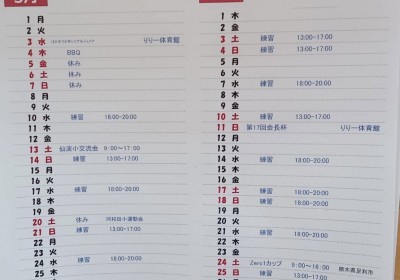 5月
1 月
2 火
3 水 りりー体育館
4 木 BBQ
5 金 休み
6 土 休み
7 日 休み
8 月
9 火
10 水 練習 18:00-20:00
11 木
12 金
13 土 仙波小交流会 9:00~17:00
14 日 練習 13:00-17:00
15 月
16 火
17 水 練習 18:00-20:00
18 木
19 金
20 土 休み 河桜田小運動会
21 日 練習 13:00-17:00
22 月
23 火
24 水 練習 18:00-20:00
25 木
1 木
2 金
3 土 練習 13:00-17:00
4 日 練習 13:00-17:00
5 月
6 火
7 水 練習 18:00-20:00
8 木
9 金
10 土 練習 13:00-17:00
11 日 第17回会長杯 りりー体育館
12 月
13 火
14 水 練習 18:00-20:00
15 木
16 金
17 土 練習 18:00-20:00
18 日 練習 18:00-20:00
19 月
20 火
21 水 練習 18:00-20:00
22 木
23 金
24 土 Zero1カップ 9:00~18:00 栃木県足利市
25 日 練習 13:00-17:00